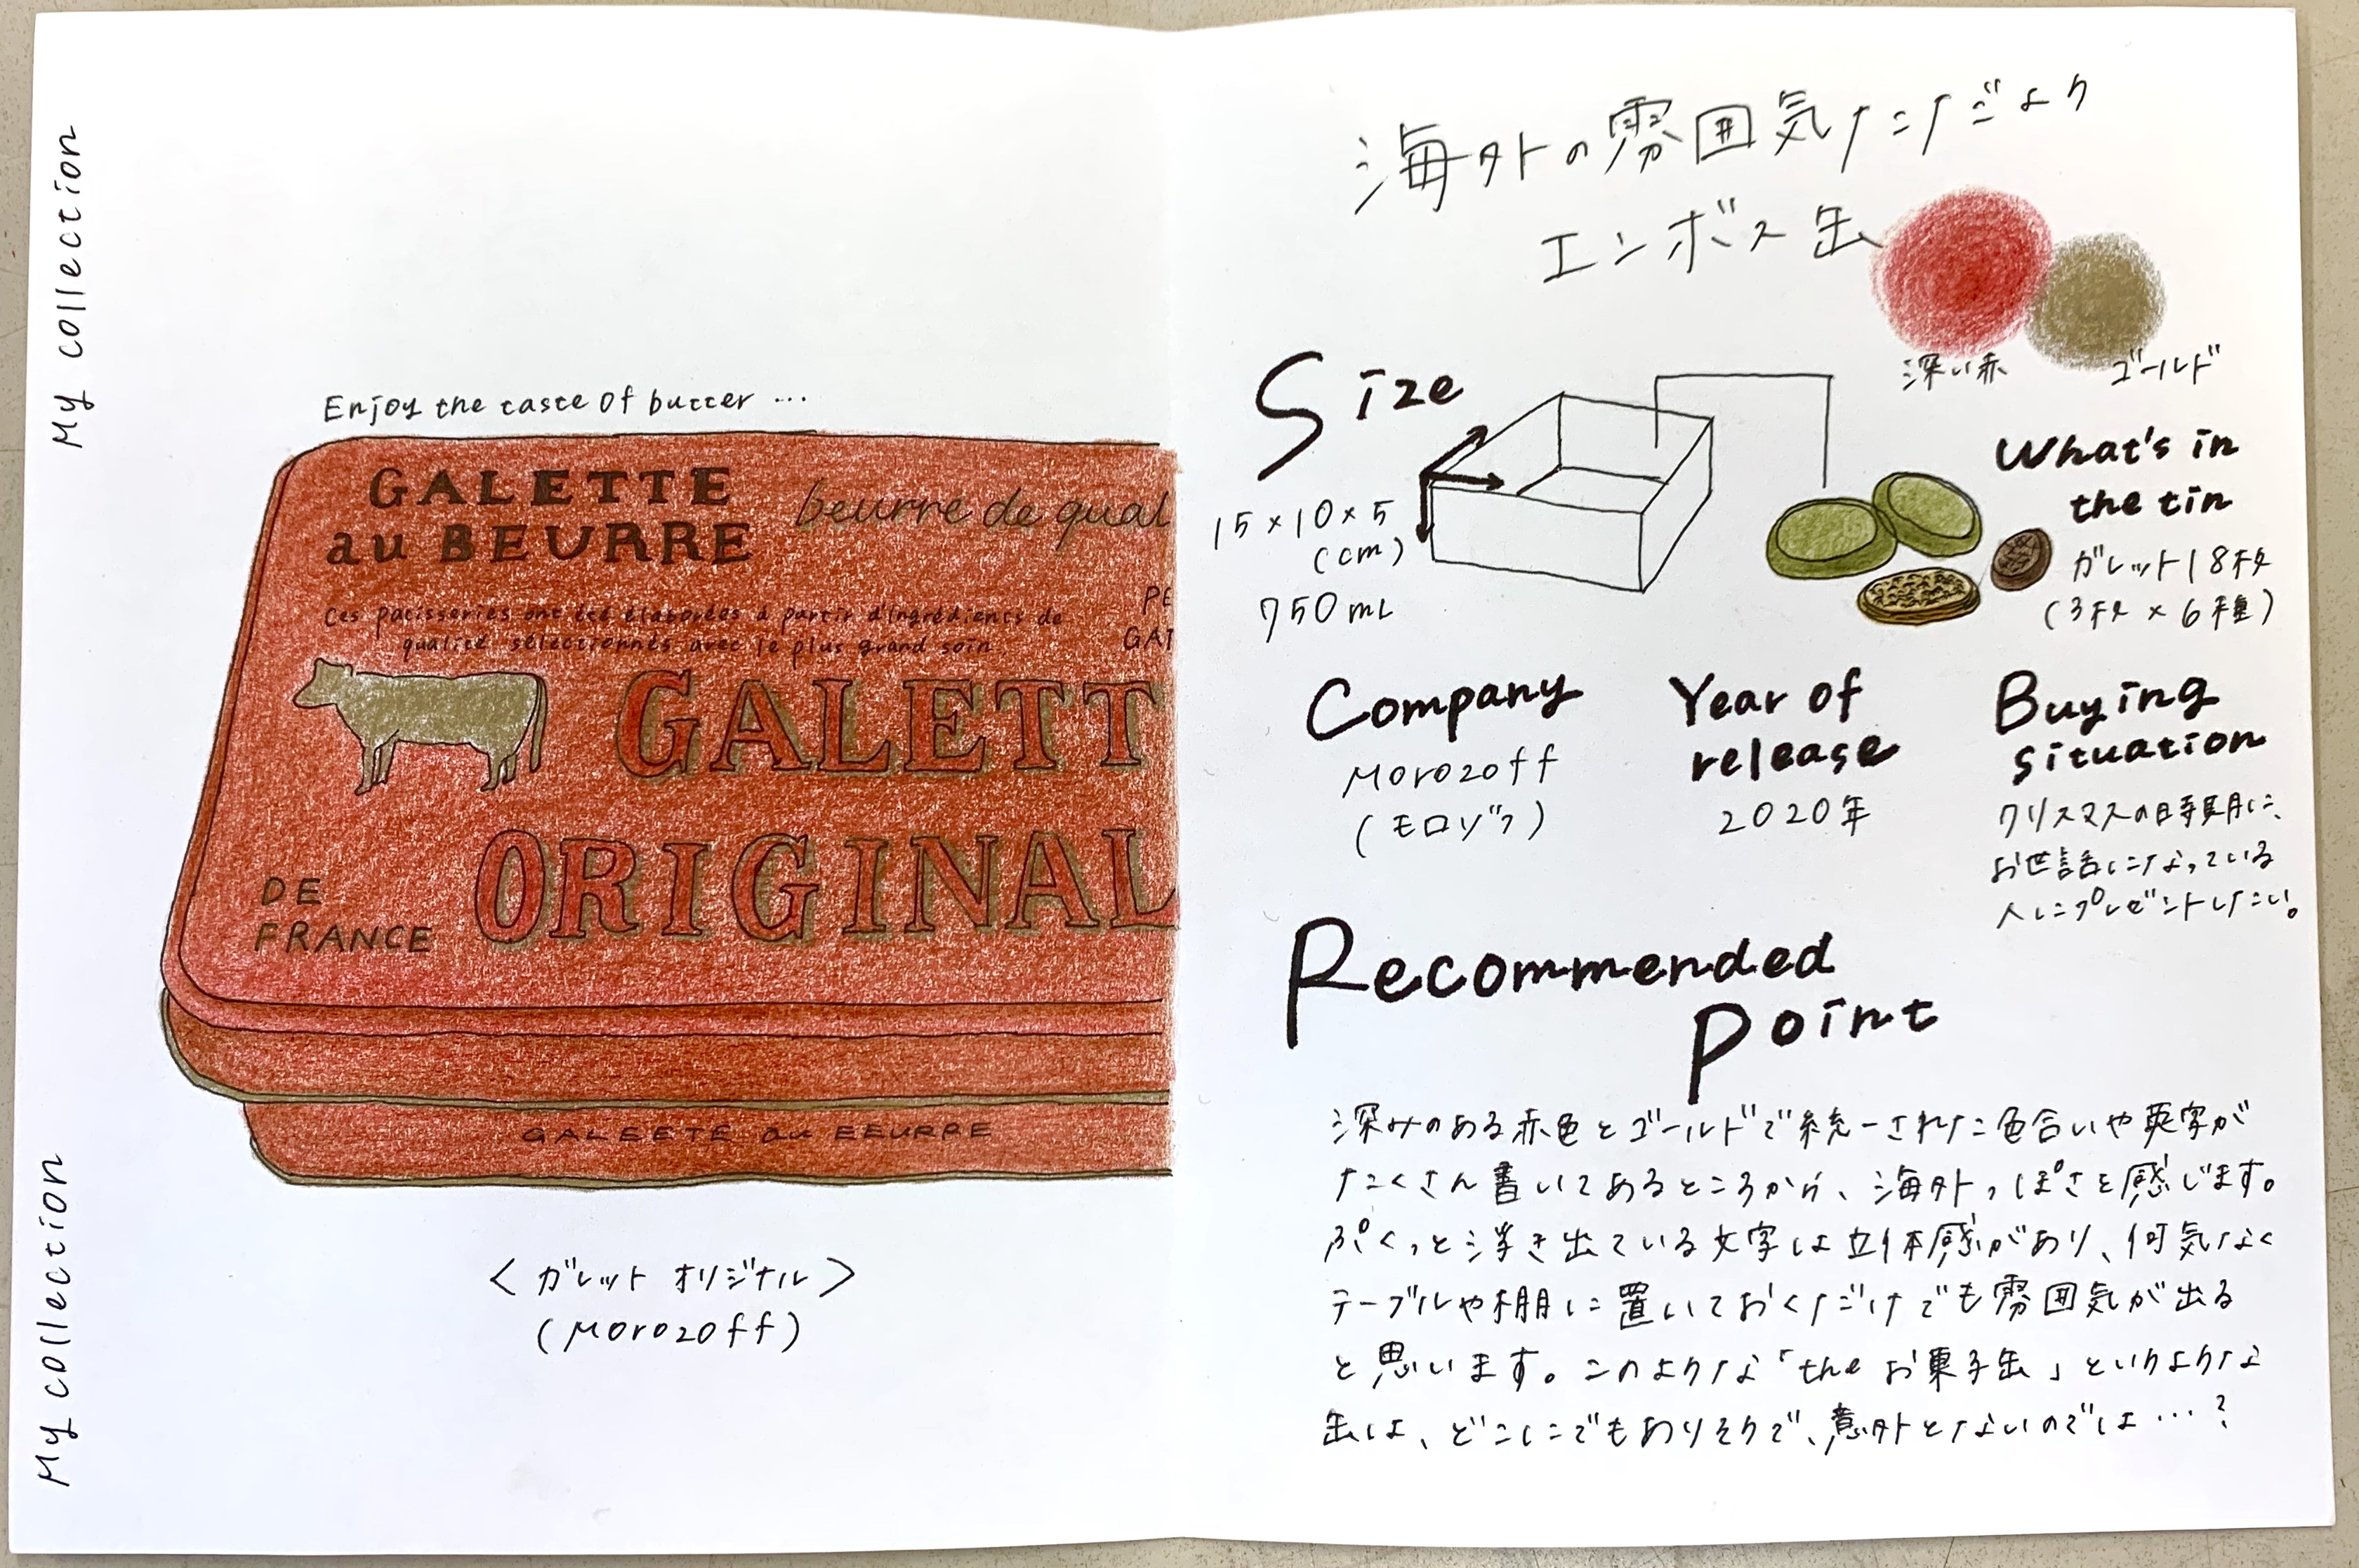 My collection
My collection
Enjoy the taste of butter ...
GALETTE
au BEURRE
beurre de qual
Ces patisseries ont été élaborées à partir d'ingrédients de
qualité sélectionnés avec le plus grand soin.
PE
GAT
GALETT
ORIGINAL
DE
FRANCE
GALEETE au EEURRE
<ガレット オリジナル>
(Morozoff)
海外の雰囲気ただよう
エンボス缶
深い赤
ゴールド
Size
15×10×5
(cm)
750mL
What's in
the tin
ガレット18枚
(3枚×6種)
Company
Morozoff
(モロゾフ)
Year of
release
2020年
Buying
situation
クリスマスの時期に、
お世話になっている
人にプレゼントしたい。
Recommended
Point
深みのある赤色とゴールドで統一された色合いや英字が
たくさん書いてあるところから、海外っぽさを感じます。
ぷくっと浮き出ている文字は立体感があり、何気なく
テーブルや棚に置いておくだけでも雰囲気が出る
と思います。このような「the お菓子缶」というような
缶は、どこにでもありそうで、意外とないのでは…?